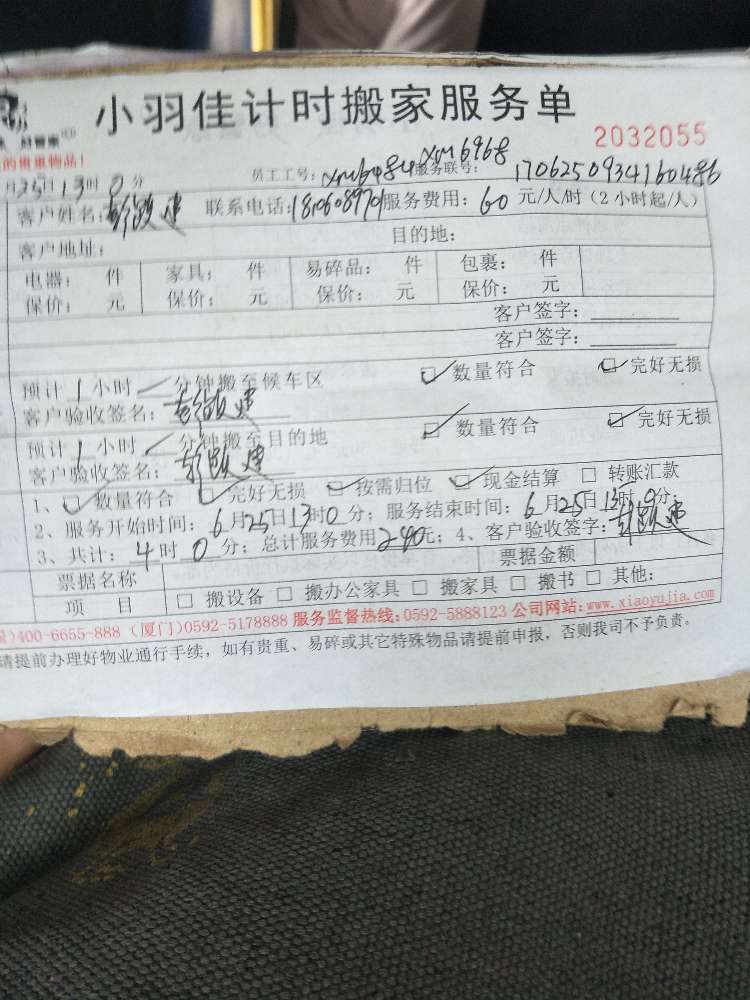 小羽佳计时搬家服务单
好管家
2032055
的贵重物品！
员工工号：xm6484 xm6968 服务联号：1706250934160486
月25日13时0分
客户姓名： 联系电话： 服务费用：60元/人/时（2小时起/人）
客户地址： 目的地：
电器： 件 家具： 件 易碎品： 件 包裹： 件
保价： 元 保价： 元 保价： 元 保价： 元
客户签字：
客户签字：
预计1小时 分钟搬至候车区 数量符合 完好无损
客户验收签名：
预计1小时 分钟搬至目的地 数量符合 完好无损
客户验收签名：
1、 数量符合 完好无损 按需归位 现金结算 转账汇款
2、服务开始时间：6月25日13时0分；服务结束时间：6月25日 时0分；
3、共计：4时0分；总计服务费用240元；4、客户验收签字：
票据名称 票据金额
项 目 搬设备 搬办公家具 搬家具 搬书 其他：
)400-6655-888（厦门)0592-5178888 服务监督热线:0592-5888123 公司网站:www.xiaoyujia.com
请提前办理好物业通行手续，如有贵重、易碎或其它特殊物品请提前申报，否则我司不予负责。